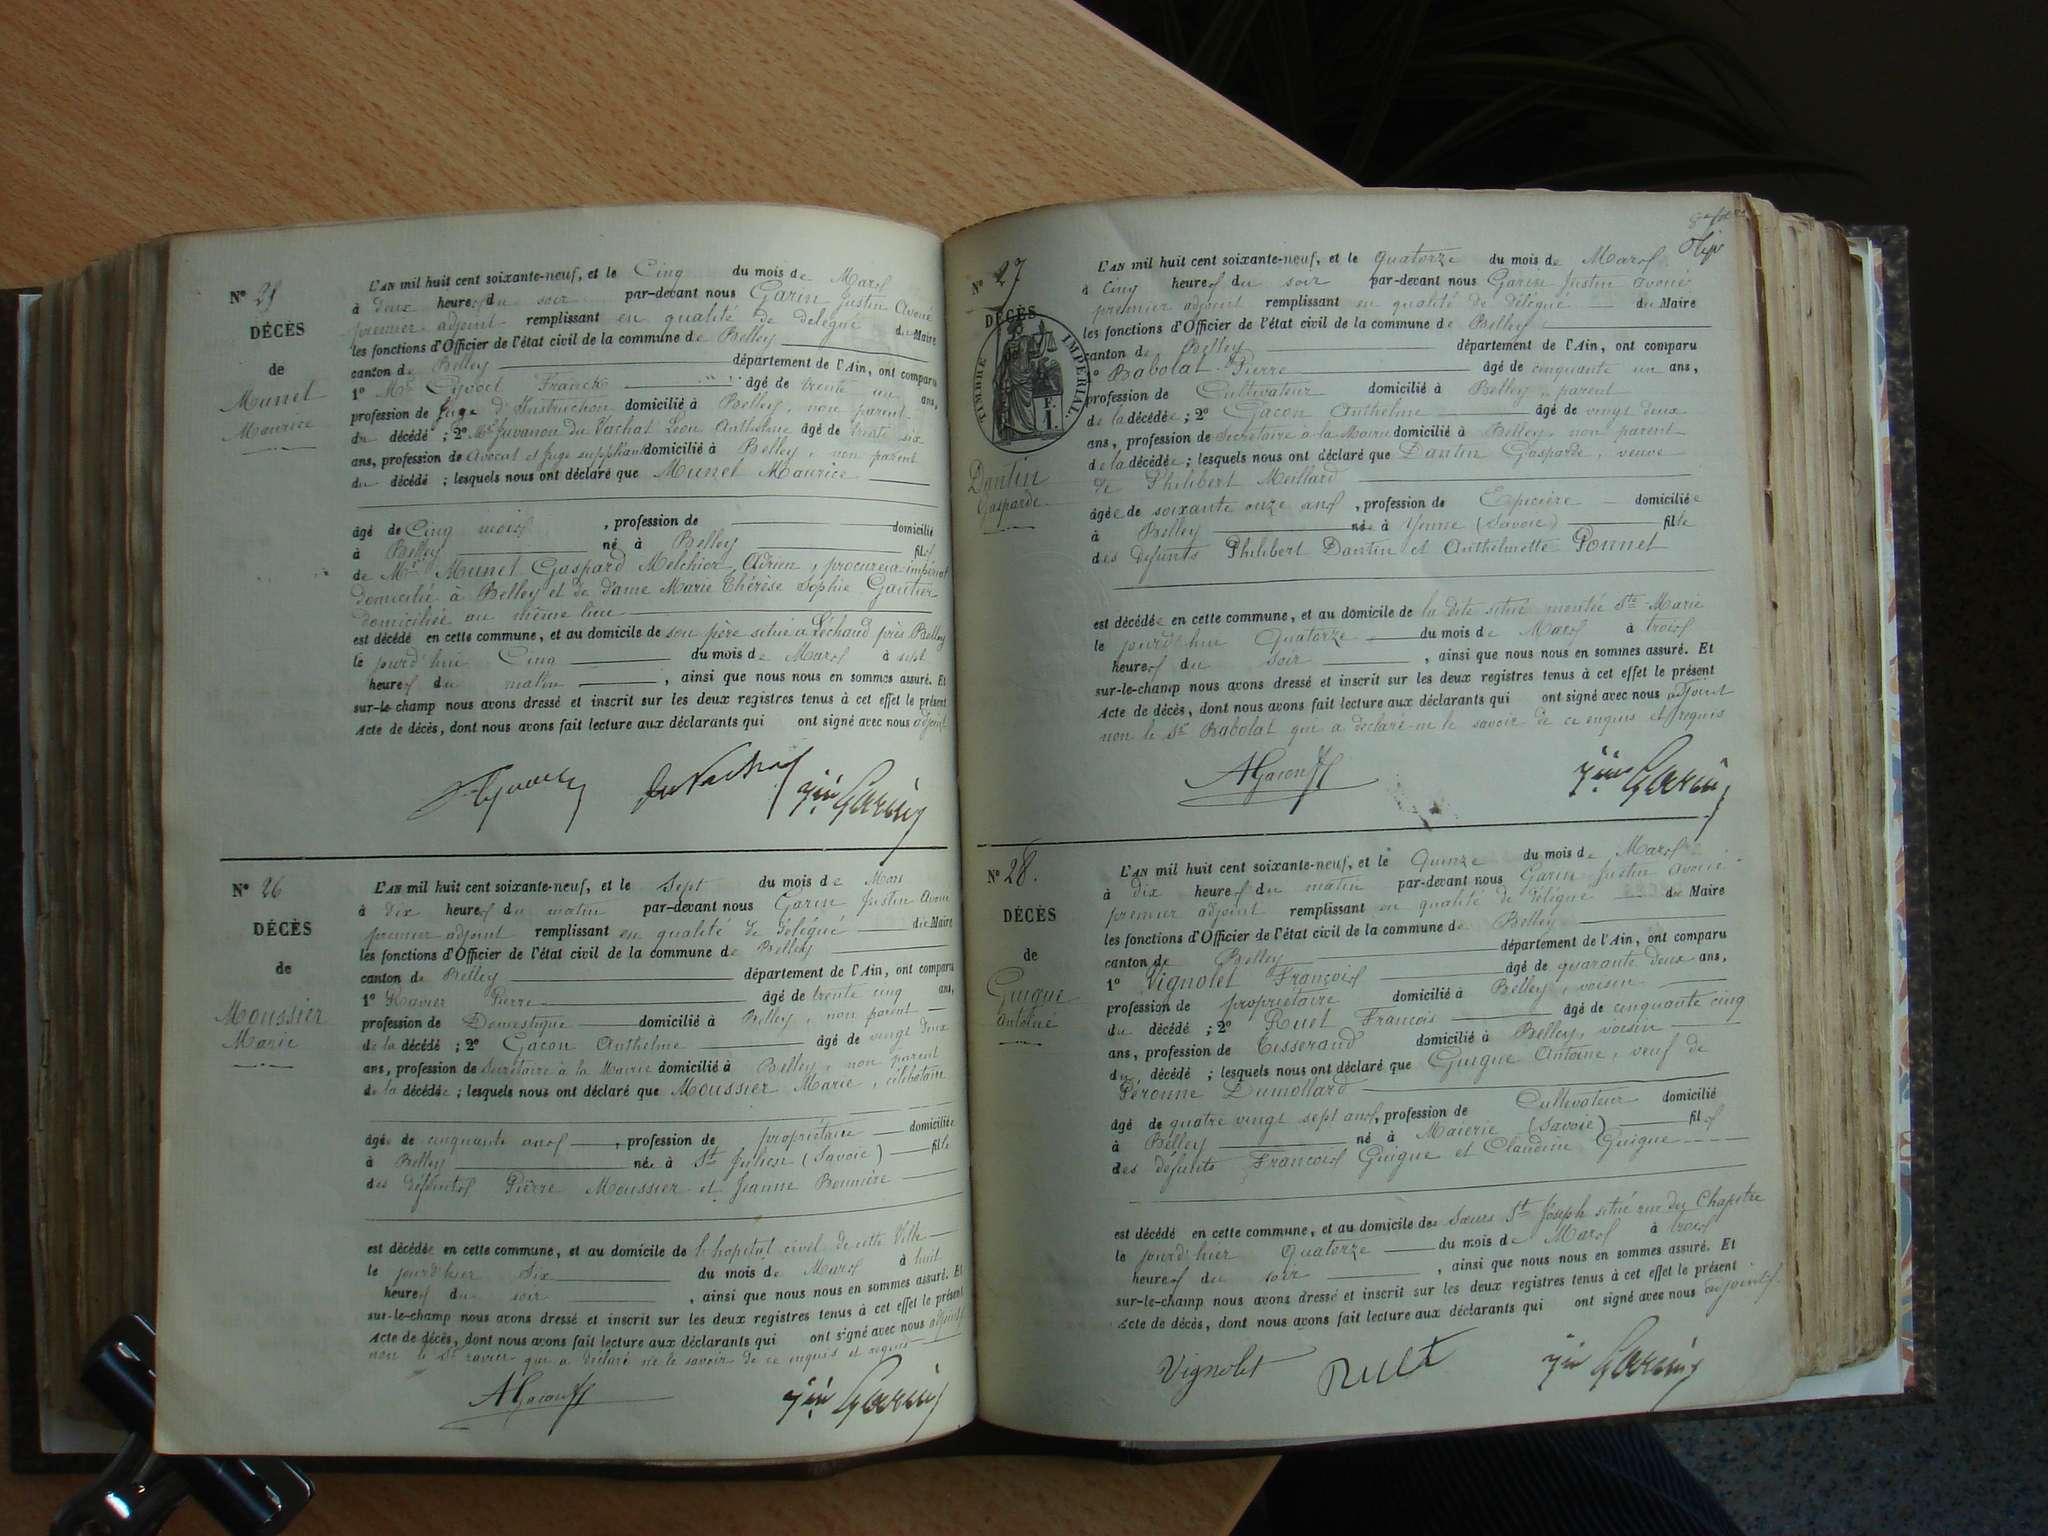 N° 25
DÉCÈS
de
Munet
Maurice
L'AN mil huit cent soixante-neuf, et le Cinq du mois de Mars
à deux heures du soir par-devant nous Garin Justin Avoué
premier adjoint remplissant en qualité de délégué du Maire
les fonctions d'Officier de l'état civil de la commune de Belley
canton de Belley département de l'Ain, ont comparu
1° Mr Franck âgé de trente un ans,
profession de Juge d'Instruction domicilié à Belley, non parent
du décédé ; 2° Mr Juvanon du Vachat Léon Anthelme âgé de trente six
ans, profession de Avocat et juge suppléant domicilié à Belley, non parent
du décédé ; lesquels nous ont déclaré que Munet Maurice
âgé de Cinq mois , profession de domicilié
à Belley né à Belley fils
de Mr Munet Gaspard Melchior Adrien, procureur impérial
domicilié à Belley et de dame Marie Thérèse Sophie Gautier
domiciliée au même lieu
est décédé en cette commune, et au domicile de son père situé à Léchaud près Belley
le jourd'hui Cinq du mois de Mars à sept
heures du matin , ainsi que nous nous en sommes assuré. Et
sur-le-champ nous avons dressé et inscrit sur les deux registres tenus à cet effet le présent
Acte de décès, dont nous avons fait lecture aux déclarants qui ont signé avec nous adjoint
DuVachat Jin Garin
N° 26
DÉCÈS
de
Moussier
Marie
L'AN mil huit cent soixante-neuf, et le Sept du mois de Mars
à Dix heures du matin par-devant nous Garin Justin Avoué
premier adjoint remplissant en qualité de délégué du Maire
les fonctions d'Officier de l'état civil de la commune de Belley
canton de Belley département de l'Ain, ont comparu
1° Ravier Pierre âgé de trente cinq ans,
profession de Domestique domicilié à Belley, non parent
de la décédé ; 2° Gacon Anthelme âgé de vingt deux
ans, profession de Secrétaire à la Mairie domicilié à Belley, non parent
de la décédée ; lesquels nous ont déclaré que Moussier Marie, célibataire
âgée de cinquante ans , profession de propriétaire domiciliée
à Belley née à St Julien (Savoie) fille
des défunts Pierre Moussier et Jeanne Bonnière
est décédée en cette commune, et au domicile de l'hopital civil de cette Ville
le jourd'hier Six du mois de Mars à huit
heures du soir , ainsi que nous nous en sommes assuré. Et
sur-le-champ nous avons dressé et inscrit sur les deux registres tenus à cet effet le présent
Acte de décès, dont nous avons fait lecture aux déclarants qui ont signé avec nous adjoint
non le Sr ravier qui a déclaré ne le savoir de ce enquis et requis
AGacon Jin Garin
N° 27
DÉCÈS
TIMBRE IMPÉRIAL.
1 F.
Dantin
Gasparde
L'AN mil huit cent soixante-neuf, et le Quatorze du mois de Mars
à Cinq heures du soir par-devant nous Garin Justin avoué
premier adjoint remplissant en qualité de délégué du Maire
les fonctions d'Officier de l'état civil de la commune de Belley
canton de Belley département de l'Ain, ont comparu
1° Babolat Pierre âgé de cinquante un ans,
profession de Cultivateur domicilié à Belley, parent
de la décédée ; 2° Gacon Anthelme âgé de vingt deux
ans, profession de Secrétaire à la Mairie domicilié à Belley, non parent
de la décédée ; lesquels nous ont déclaré que Dantin Gasparde, veuve
de Philibert Meillard
âgée de soixante onze ans , profession de Epicière domiciliée
à Belley née à Yenne (Savoie) fille
des défunts Philibert Dantin et Anthelmette Ponnet
est décédée en cette commune, et au domicile de la dite situé montée Ste Marie
le jourd'hui Quatorze du mois de Mars à trois
heures du soir , ainsi que nous nous en sommes assuré. Et
sur-le-champ nous avons dressé et inscrit sur les deux registres tenus à cet effet le présent
Acte de décès, dont nous avons fait lecture aux déclarants qui ont signé avec nous adjoint
non le Sr Babolat qui a déclaré ne le savoir de ce enquis et requis
AGacon Jin Garin
N° 28.
DÉCÈS
de
Guigue
Antoine
L'AN mil huit cent soixante-neuf, et le Quinze du mois de Mars
à Dix heures du matin par-devant nous Garin Justin Avoué
premier adjoint remplissant en qualité de délégué du Maire
les fonctions d'Officier de l'état civil de la commune de Belley
canton de Belley département de l'Ain, ont comparu
1° Vignolet François âgé de quarante deux ans,
profession de propriétaire domicilié à Belley, voisin
du décédé ; 2° Ruet François âgé de cinquante cinq
ans, profession de Tisserand domicilié à Belley, voisin
du décédé ; lesquels nous ont déclaré que Guigue Antoine, veuf de
Péronne Dumollard
âgé de quatre vingt sept ans, profession de Cultivateur domicilié
à Belley né à (Savoie) fils
des défunts François Guigue et Claudine Guigue
est décédé en cette commune, et au domicile des Soeurs St Joseph situé rue du Chapitre
le jourd'hier Quatorze du mois de Mars à trois
heures du soir , ainsi que nous nous en sommes assuré. Et
sur-le-champ nous avons dressé et inscrit sur les deux registres tenus à cet effet le présent
Acte de décès, dont nous avons fait lecture aux déclarants qui ont signé avec nous adjoint
Vignolet Ruet Jin Garin